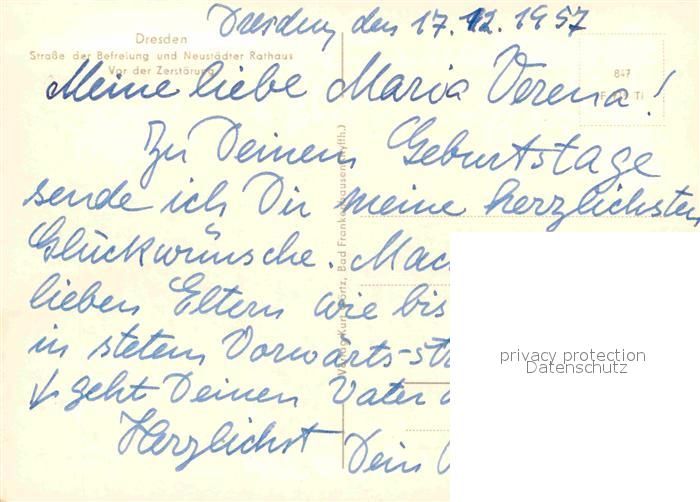 Dresden, den 17.12.1957
Dresden
Straße der Befreiung und Neustädter Rathaus
Vor der Zerstörung
847
Meine liebe Maria Verena!
Zu Deinem Geburtstage
sende ich Dir meine herzlichsten
Glückwünsche. Mac
lieben Eltern wie bis
in stetem Vorwärts-str
geht Deinen Vater
Herzlichst Dein
Bad Frankenhausen (Kyffh.)
privacy protection
Datenschutz